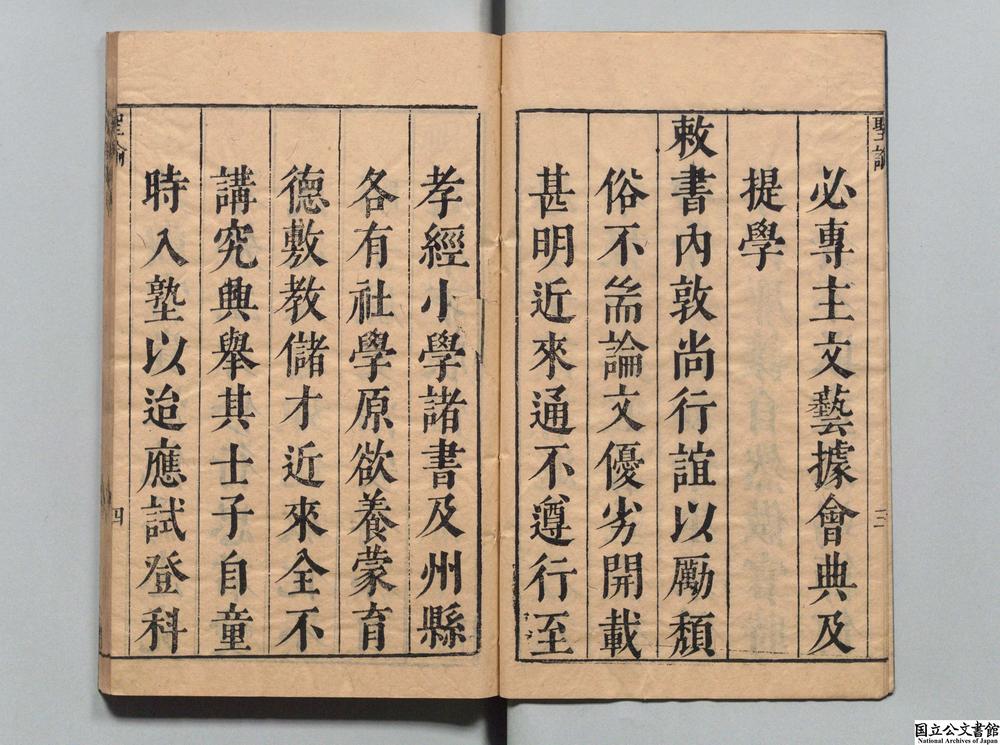 聖諭
必專主文藝據會典及
提學
敕書內敦尚行誼以勵頹
俗不耑論文優劣開載
甚明近來通不遵行至
三
孝經小學諸書及州縣
各有社學原欲養蒙育
德敷教儲才近來全不
講究興舉其士子自童
時入塾以迨應試登科
聖諭
四
国立公文書館
National Archives of Japan